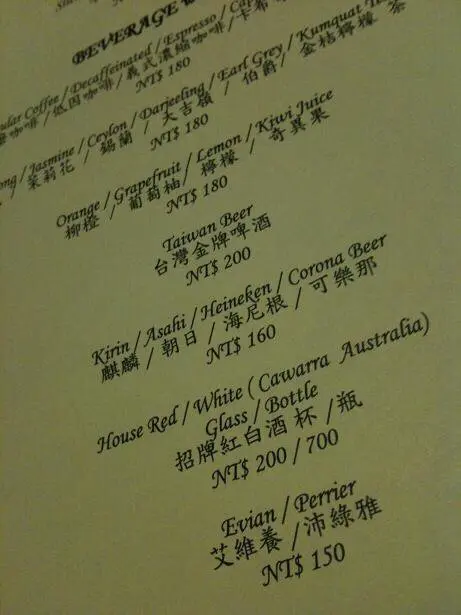 BEVERAGE
Coffee / Decaffeinated / Espresso /
咖啡 / 低因咖啡 / 義式濃縮咖啡 /
NT$ 180
Jasmine / Ceylon / Darjeeling / Earl Grey / Kumquat
茉莉花 / 錫蘭 / 大吉嶺 / 伯爵 / 金桔檸檬 茶
NT$ 180
Orange / Grapefruit / Lemon / Kiwi Juice
柳橙 / 葡萄柚 / 檸檬 / 奇異果
NT$ 180
Taiwan Beer
台灣金牌啤酒
NT$ 200
Kirin / Asahi / Heineken / Corona Beer
麒麟 / 朝日 / 海尼根 / 可樂那
NT$ 160
House Red / White ( Cawarra Australia)
Glass / Bottle
招牌紅白酒 杯 / 瓶
NT$ 200 / 700
Evian / Perrier
艾維養 / 沛綠雅
NT$ 150